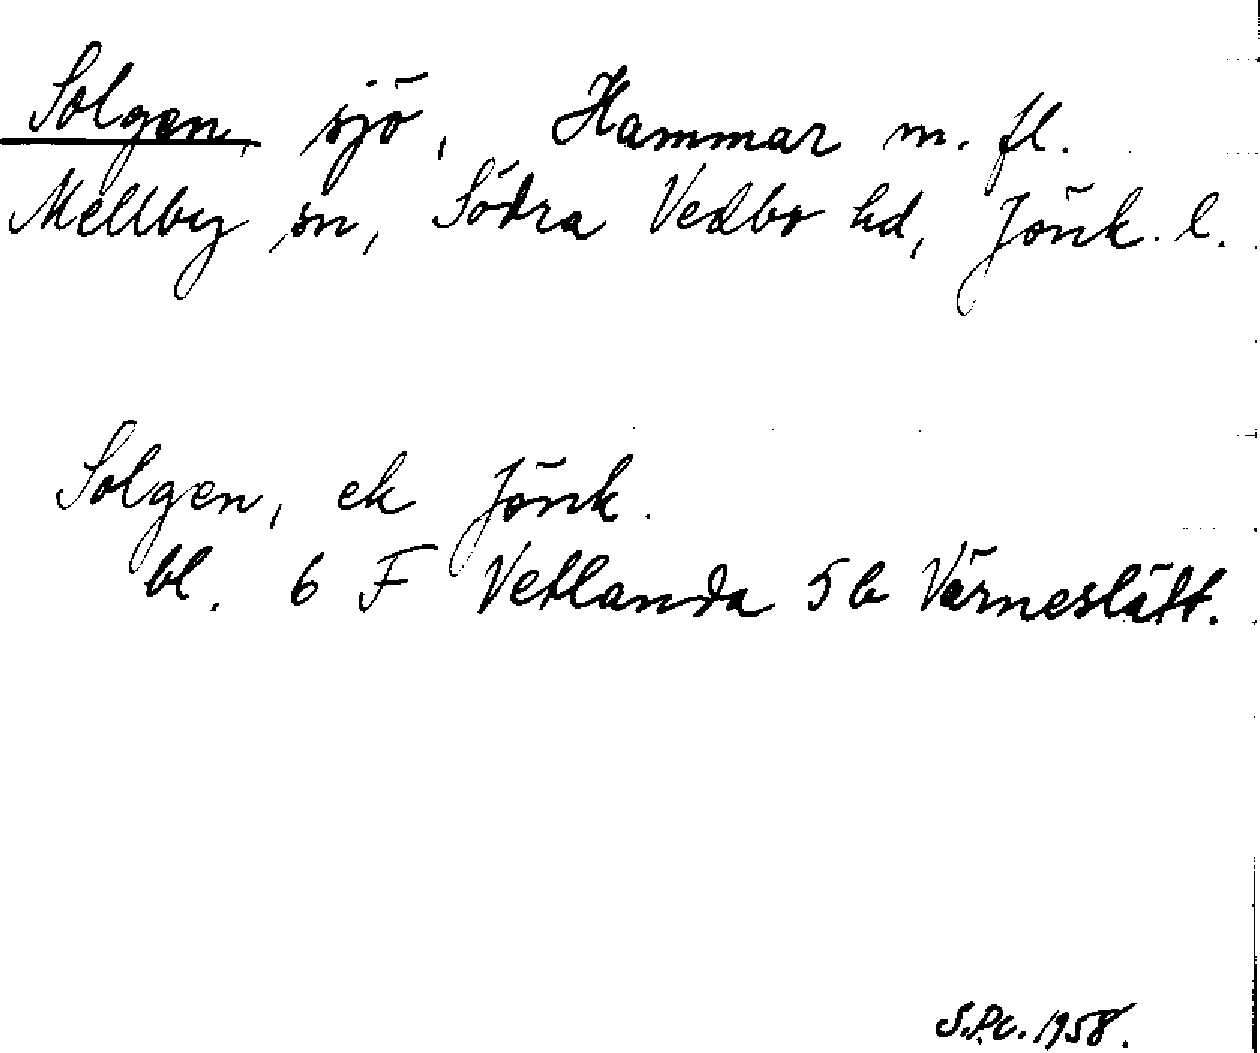 Solgen, sjö, Hammar m. fl.
Mellby sn, Södra Vedbo hd, Jönk. l.
Solgen, ek Jönk.
bl. 6 F Vetlanda 5 b Värneslätt.
S.P.C. 1958.